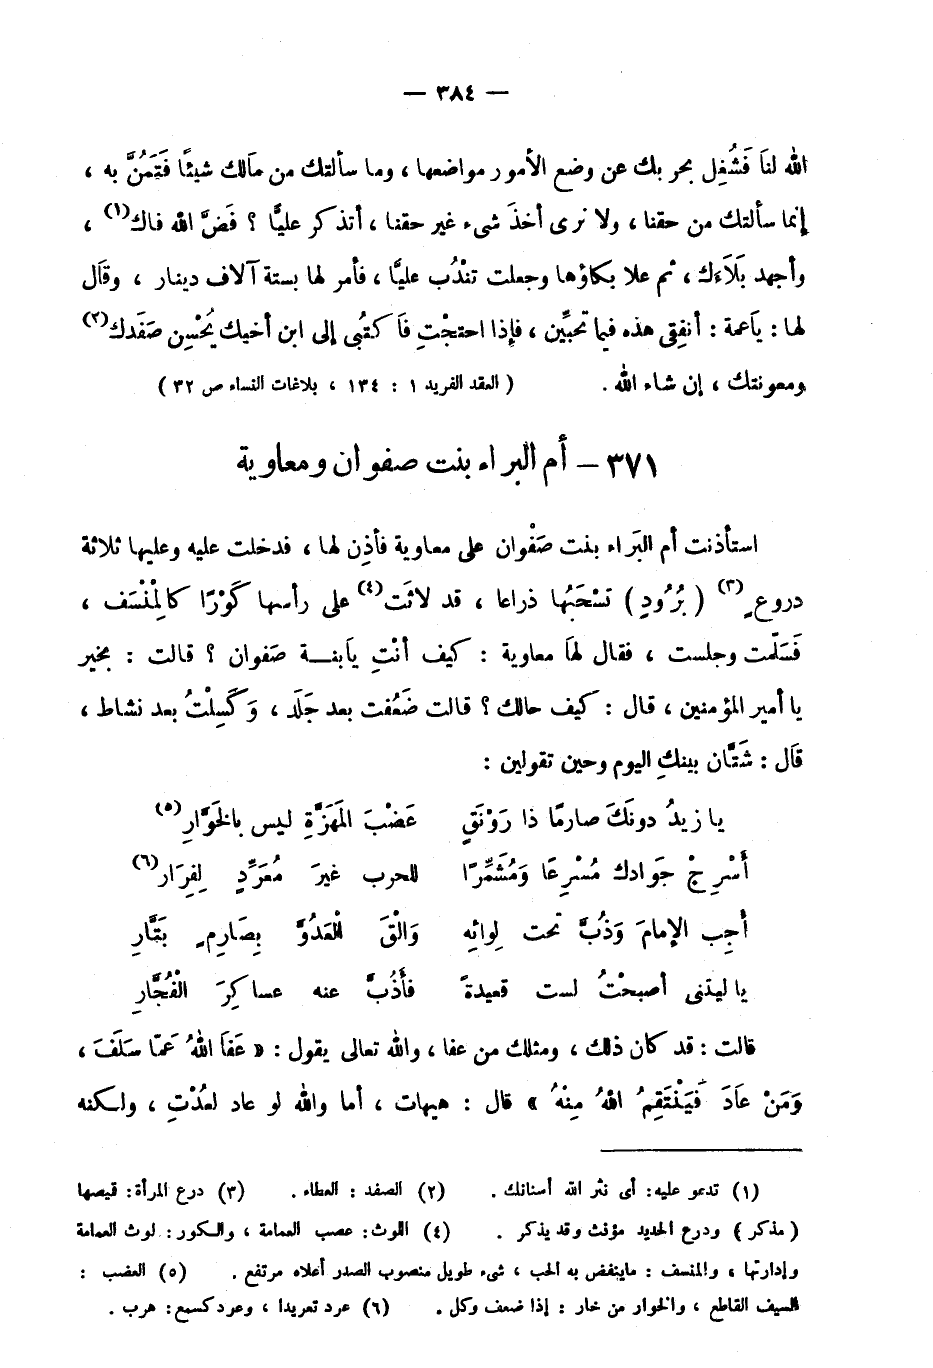 — ٣٨٤ —
الله لنا فَشُغِل بحربك عن وضع الأمور مواضعها ، وما سألتك من مالك شيئًا فَتَمُنَّ به ،
إنما سألتك من حقنا ، ولا نرى أخذَ شىء غير حقنا ، أتذكر عليًّا ؟ فَضَّ الله فاك(١) ،
وأجهد بَلَاءك ، ثم علا بكاؤها وجعلت تنْدُب عليًّا ، فأمر لها بستة آلاف دينار ، وقال
لها : ياعمة : أنفِقى هذه فيما تحبِّين ، فإذا احتجْتِ فاكتُبى إلى ابن أخيك يُحْسِن صَفَدك(٢)
ومعونتك ، إن شاء الله . ( العقد الفريد ١ : ١٣٤ ، بلاغات النساء ص ٣٢ )
٣٧١ – أم البراء بنت صفوان ومعاوية
استأذنت أم البَراء بنت صَفْوان على معاوية فأذِن لها ، فدخلت عليه وعليها ثلاثة
دروعٍ(٣) ( بُرُودٍ ) تسْحَبُها ذراعا ، قد لاثَت(٤) على رأسها كَوْرًا كالمِنْسَف ،
فَسَلّمت وجلست ، فقال لها معاوية : كيف أنْتِ يابنـة صَفوان ؟ قالت : بخير
يا أمير المؤمنين ، قال : كيف حالك ؟ قالت ضَعُفت بعد جَلَد ، وَكَسِلْتُ بعد نشاط ،
قال : شَتَّان بينكِ اليوم وحين تقولين :
يا زيدُ دونَكَ صارمًا ذا رَوْنَقٍ عَضْبَ المَهَزَّةِ ليس بالخَوَّارِ(٥)
أَسْرِجْ جَوادك مُسْرِعًا وَمُشَمِّرًا للحرب غيرَ مُعَرِّدٍ لِفِرَار(٦)
أجِب الإمامَ وَذُبَّ تحت لِوائِه وَالْقَ الْعَدُوَّ بِصَارِمٍ بَتَّارِ
يا ليتنى أصبحْتُ لست قعيدةً فأَذُبَّ عنه عساكِرَ الْفُجَّارِ
قالت : قد كان ذلك ، ومثلك من عفا ، والله تعالى يقول : « عَفَا اللهُ عَمّا سَلَفَ ،
وَمَنْ عَادَ فَيَنْتَقِمُ اللهُ مِنْهُ » قال : هيهات ، أما والله لو عاد لعُدْتِ ، ولكنه
(١) تدعو عليه : أى نثر الله أسنانك . (٢) الصفد : العطاء . (٣) درع المرأة : قيصها
( مذكر ) ودرع الحديد مؤنث وقد يذكر . (٤) اللوث : عصب العمامة ، والكور : لوث العمامة
وإدارتها ، والمنسف : ماينفض به الحب ، شىء طويل منصوب الصدر أعلاه مرتفع . (٥) العضب :
السيف القاطع ، والخوار من خار : إذا ضعف وكل . (٦) عرد تعريدا ، وعرد كسمع : هرب .